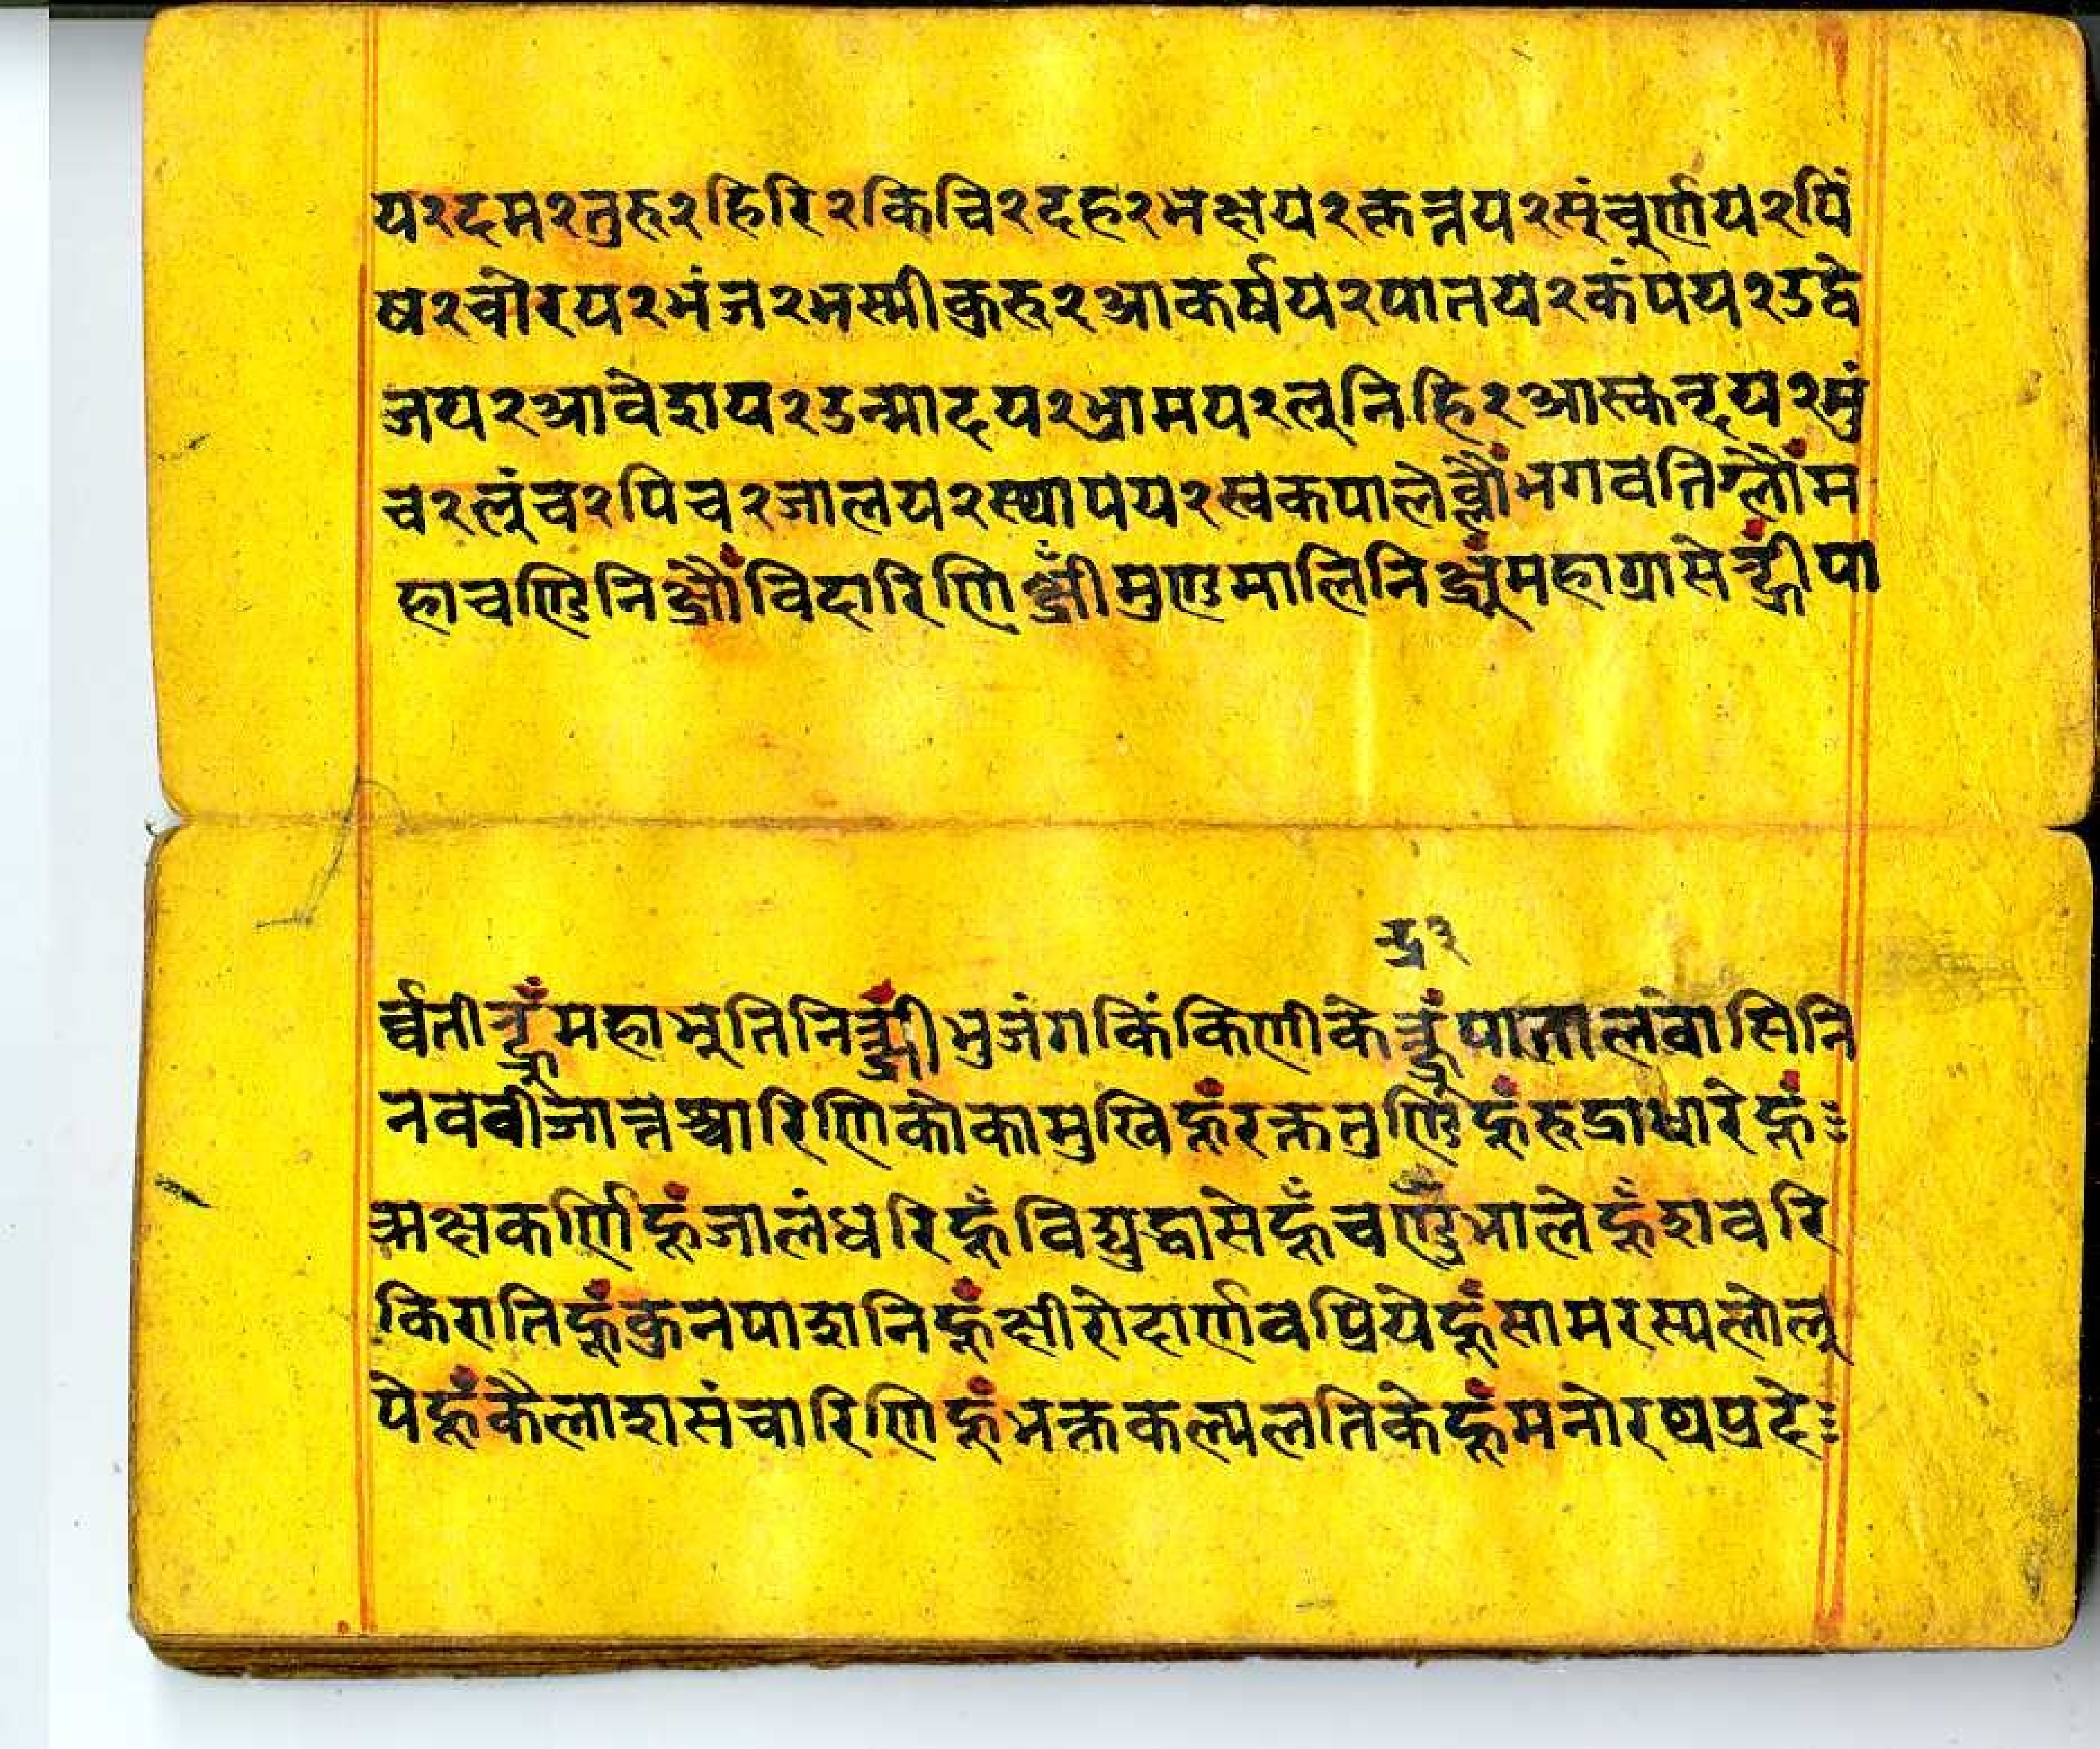 य२दम२तुरु२हिरि२किचि२दह२भक्षय२कृन्तय२संचूर्णय२पिं
ष२चोरय२भंज२भस्मीकुरु२आकर्षय२पातय२कंपय२उद्वे
जय२आवेशय२उन्मादय२भ्रामय२लूनिहि२आस्कन्दय२मुं
च२लुंच२पिच२जालय२स्थापय२स्वकपाले भगवतिग्लौंम
हाचण्डिनि विदारिणि मुण्डमालिनि महाग्रासे पा
र्व्वती महाभूतिनि भुजंगकिंकिणीके पातालवासिनि
नवबीजान्तश्चारिणिकोकामुखिह्लंरक्ततुण्डिह्लंरुद्राधारेह्लं
अक्षकर्णिह्लूंजालंधरिह्लूँविद्युद्वासेह्लूँचण्डभालेह्लूँशवरि
किरातिह्लूंकुनपाशनिह्लूंक्षीरोदार्णवप्रियेह्लूंसामरस्यलोलू
पेह्लूंकैलाशसंचारिणिह्लूंभक्तकल्पलतिकेह्लूंमनोरथप्रदे